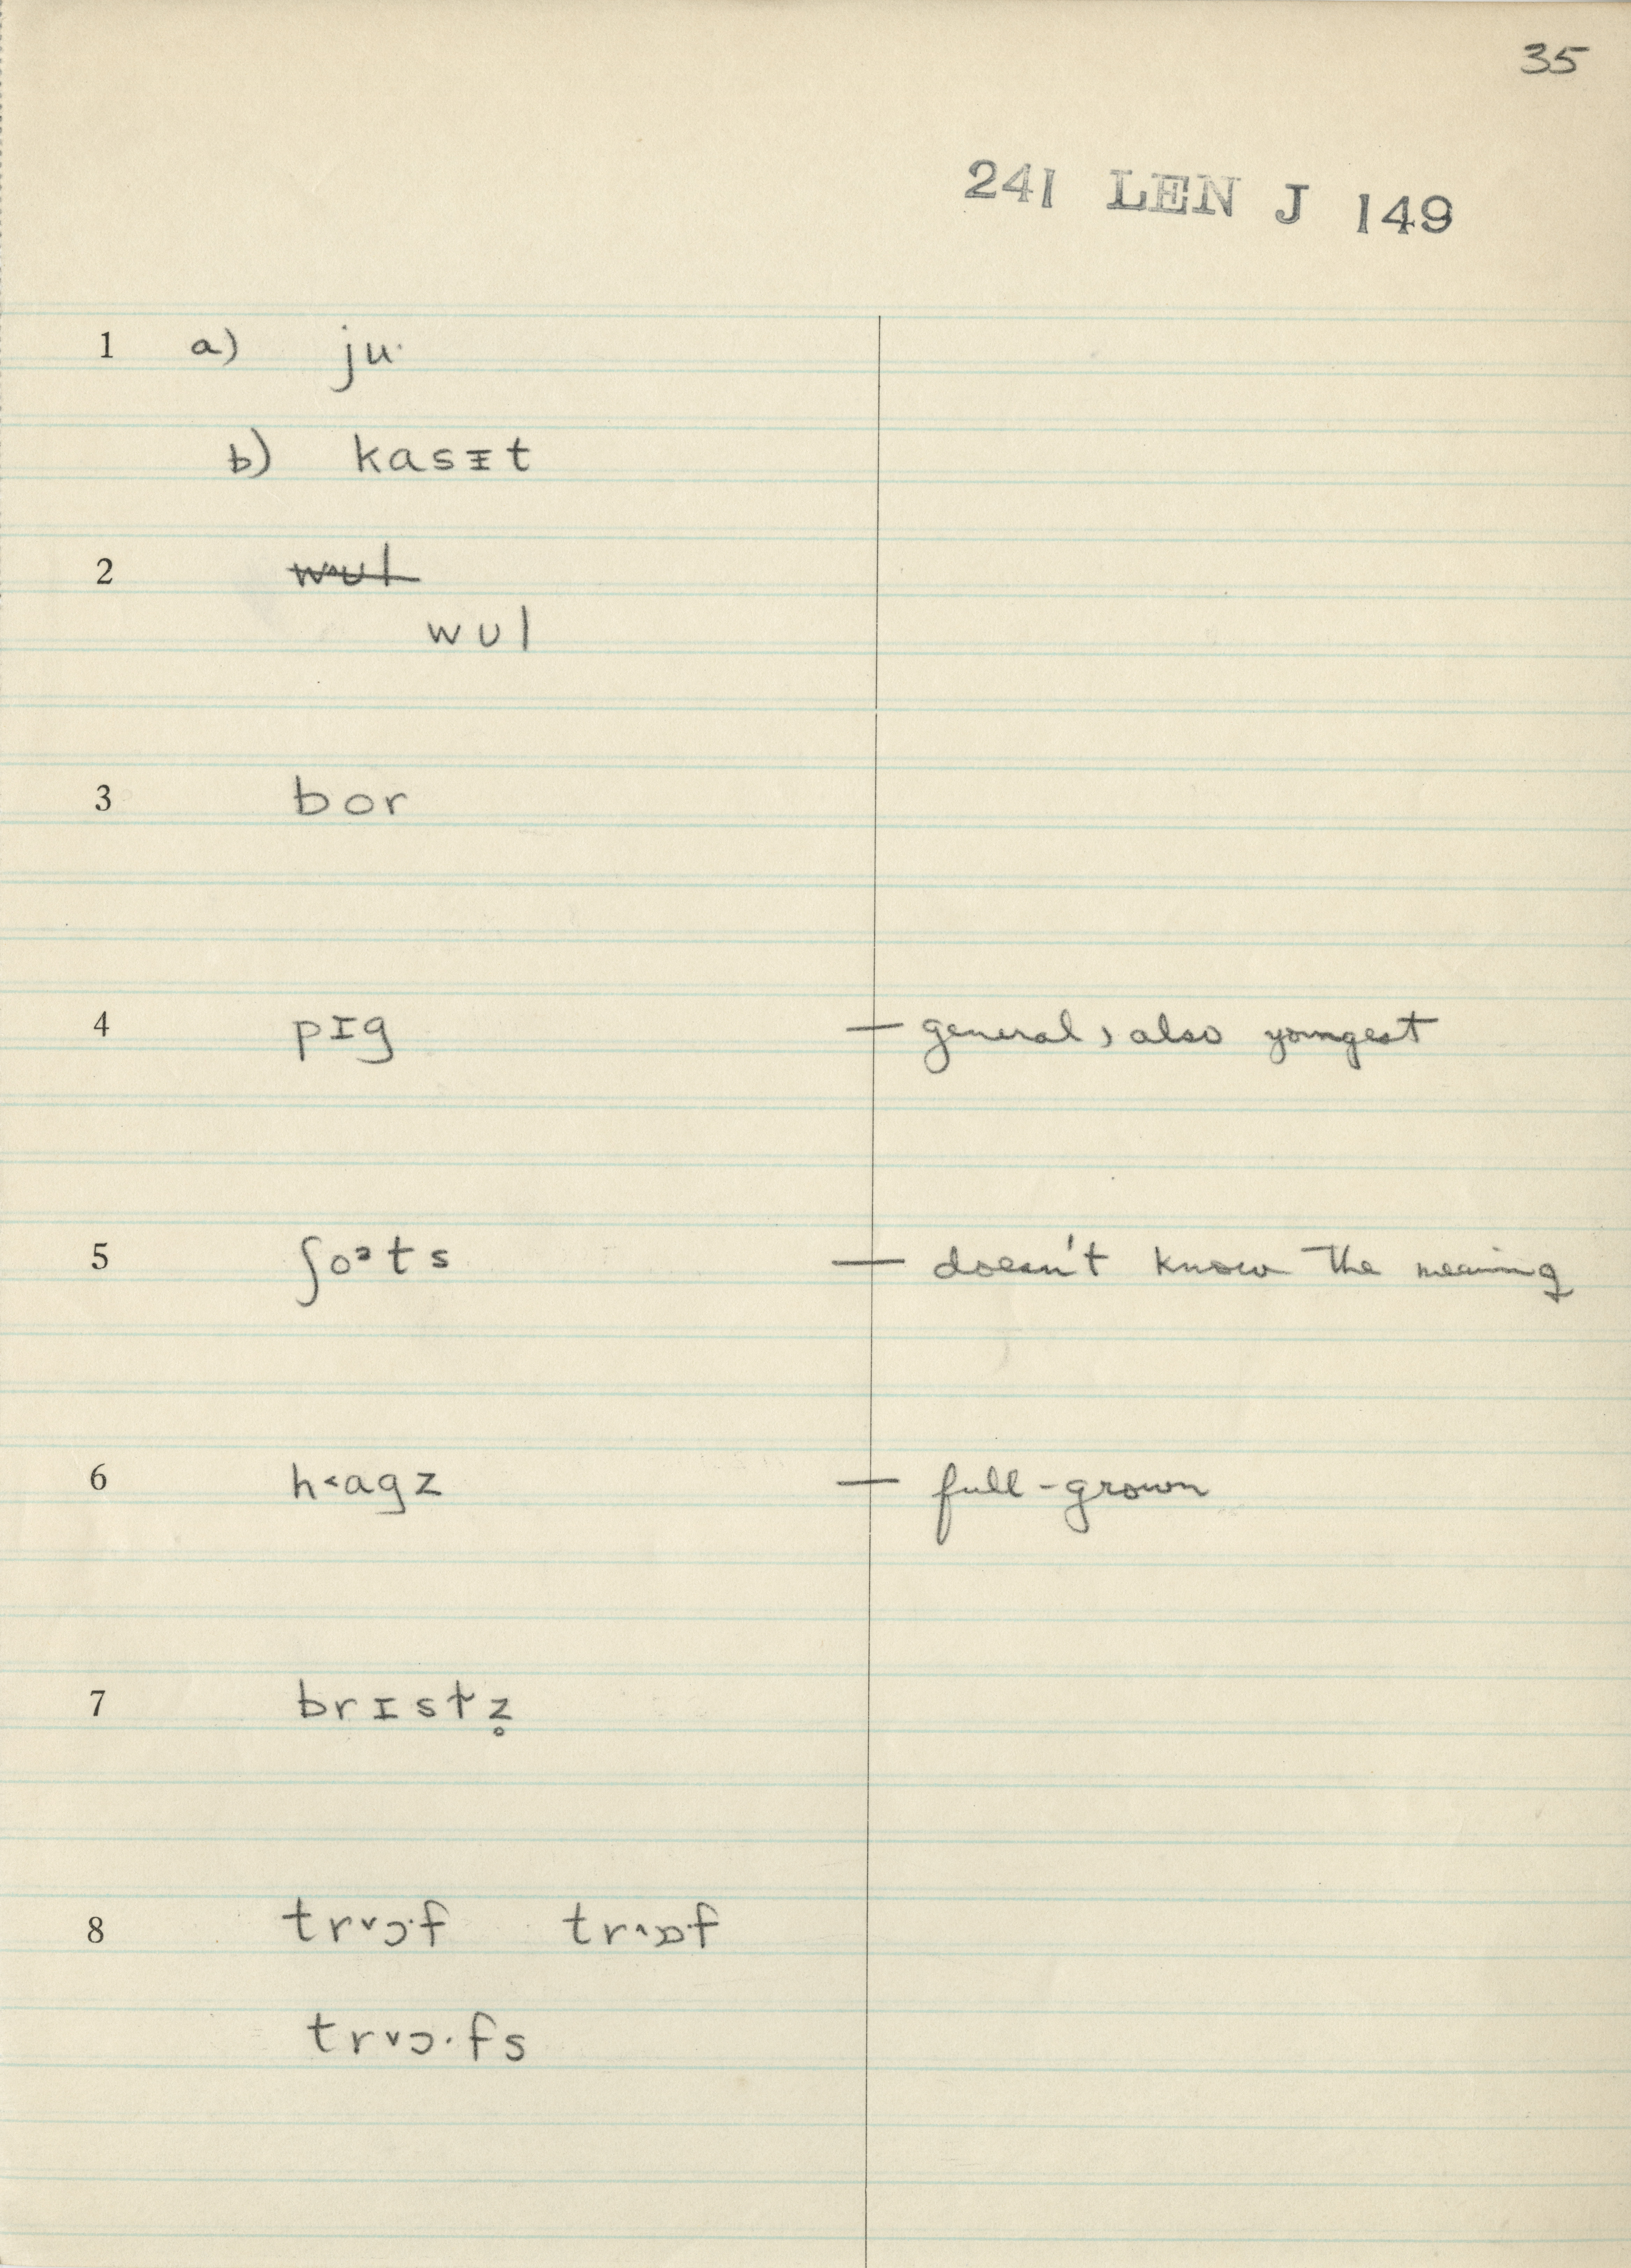 35
241 LEN J 149
1 a) ju·
b) kasᵻt
2 wul
wʊl
3 bor
4 pɪg — general, also youngest
5 ʃoᵊts — doesn't know the meaning
6 h˂agz — full-grown
7 brɪstz̥
8 tr˅ɔ·f tr˄ɒ·f
tr˅ɔ·fs